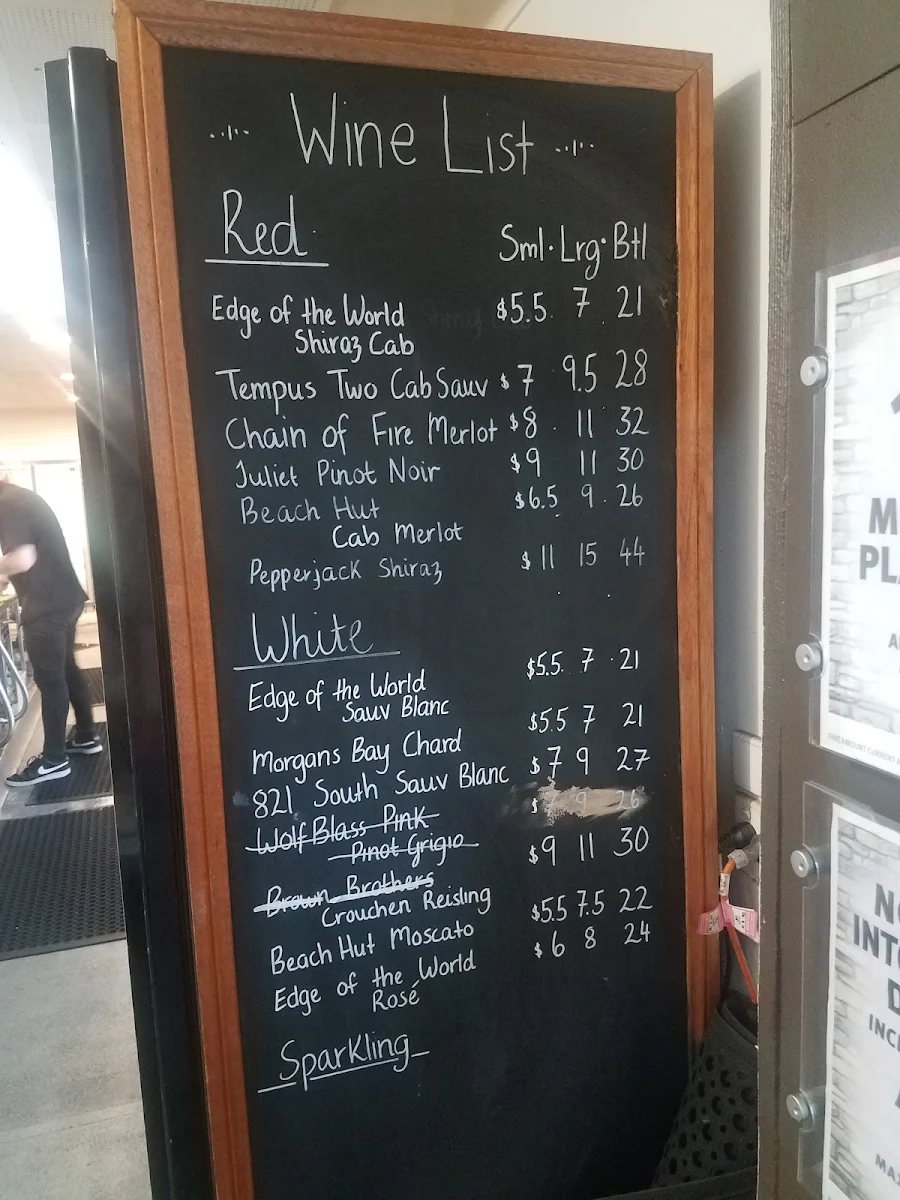 Wine List
Red
Sml · Lrg · Btl
Edge of the World $5.5 7 21
Shiraz Cab
Tempus Two Cab Sauv $7 9.5 28
Chain of Fire Merlot $8 11 32
Juliet Pinot Noir $9 11 30
Beach Hut $6.5 9 26
Cab Merlot
Pepperjack Shiraz $11 15 44
White
Edge of the World $5.5 7 21
Sauv Blanc
Morgans Bay Chard $5.5 7 21
821 South Sauv Blanc $7 9 27
Wolf Blass Pink $7 9 26
Pinot Grigio
Brown Brothers $9 11 30
Crouchen Reisling
Beach Hut Moscato $5.5 7.5 22
Edge of the World $6 8 24
Rosé
Sparkling